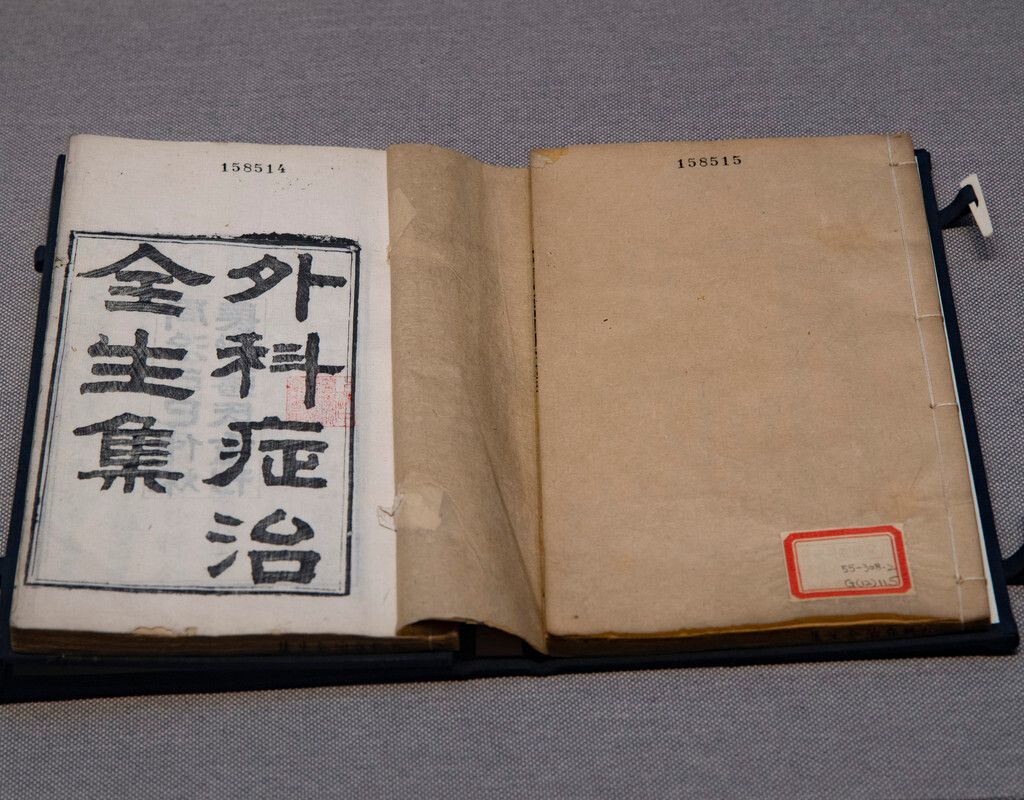 158514
外科症治
全生集
158515
55-308.2
G(12)115